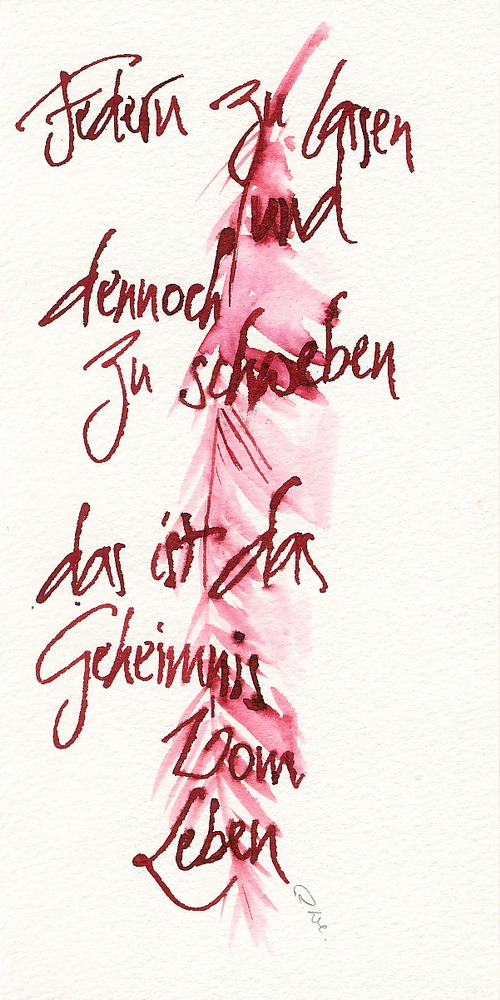 Federn zu lassen
und
dennoch
zu schweben
das ist das
Geheimnis
vom
Leben